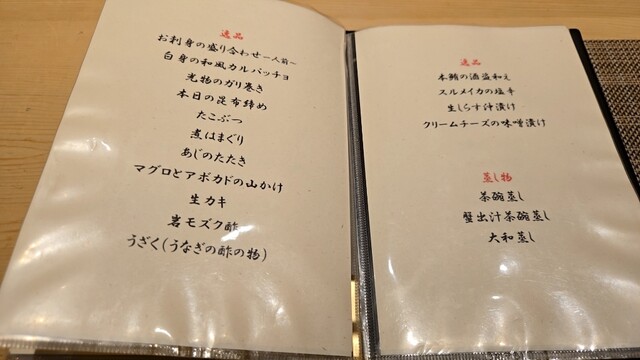 逸品
お刺身の盛り合わせ一人前~
白身の和風カルパッチョ
光物のガリ巻き
本日の昆布締め
たこぶつ
煮はまぐり
あじのたたき
マグロとアボカドの山かけ
生カキ
岩モズク酢
うざく(うなぎの酢の物)
逸品
本鮪の酒盗和え
スルメイカの塩辛
生しらす汁漬け
クリームチーズの味噌漬け
蒸し物
茶碗蒸し
蟹出汁茶碗蒸し
大和蒸し